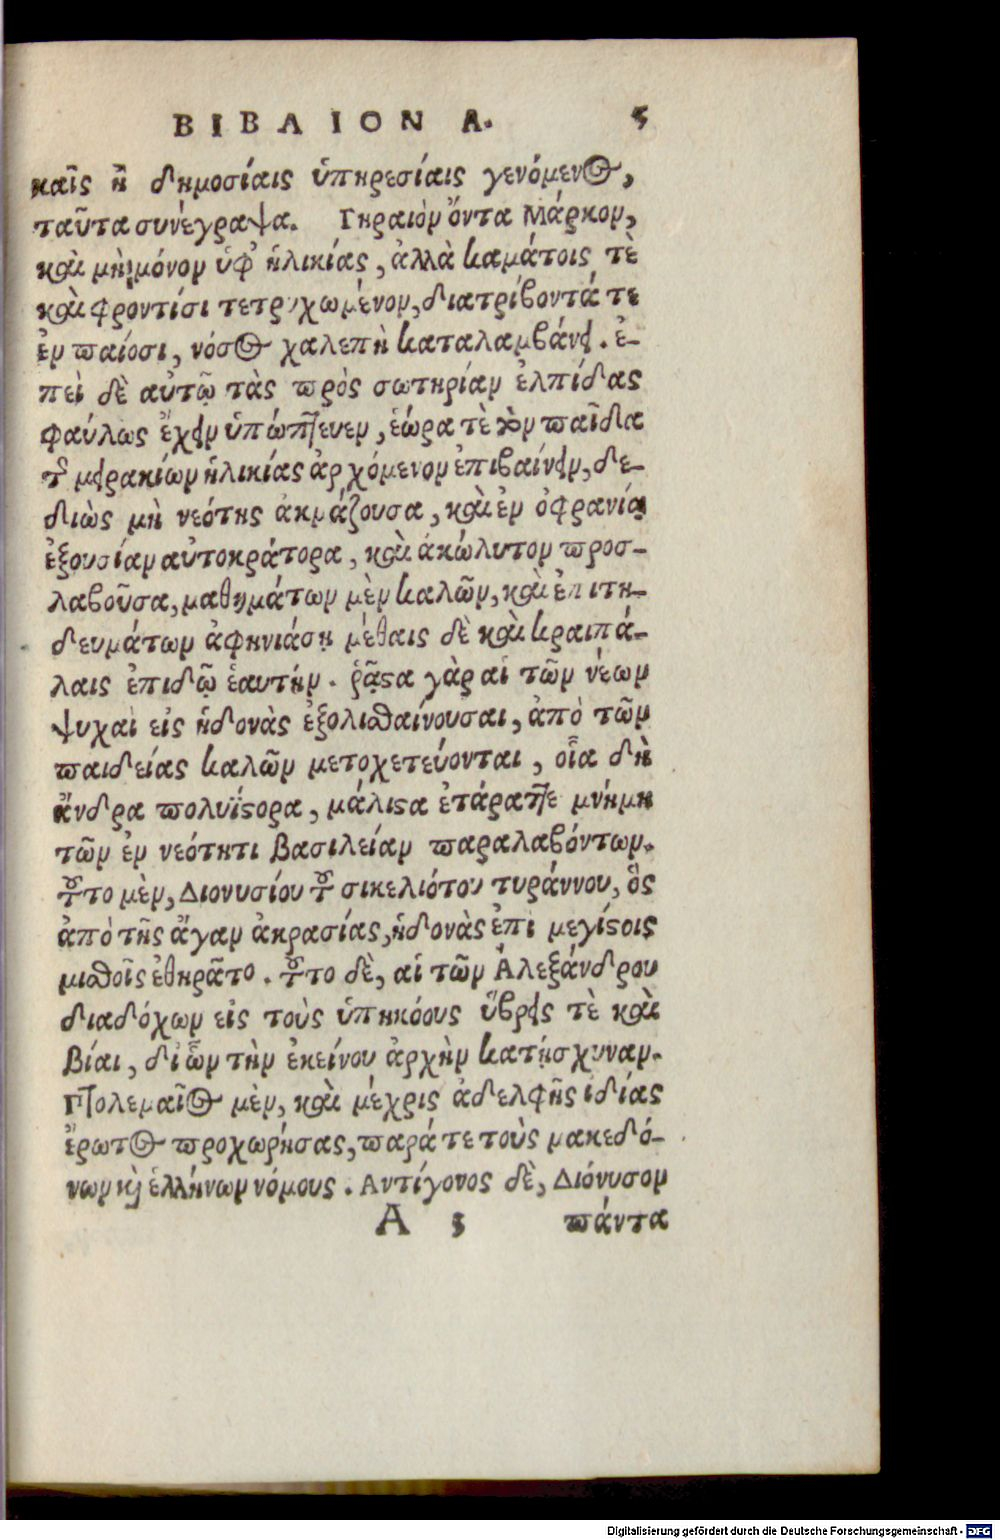 ΒΙΒΛΙΟΝ Α. 5
καῖς ἢ δημοσίαις ὑπηρεσίαις γενόμενος,
ταῦτα συνέγραψα. Γηραιὸν ὄντα Μάρκον,
καὶ μὴ μόνον ὑφ' ἡλικίας, ἀλλὰ καμάτοις τὲ
καὶ φροντίσι τετρυχωμένον, διατρίβοντά τε
ἐν παίοσι, νόσος χαλεπὴ καταλαμβάνει. ἐ-
πεὶ δὲ αὐτῷ τὰς πρὸς σωτηρίαν ἐλπίδας
φαύλως ἔχειν ὑπώπτευεν, ἑώρα τὲ τὸν παῖδα
τῆς μειρακίων ἡλικίας ἀρχόμενον ἐπιβαίνειν, δε-
διὼς μὴ νεότης ἀκμάζουσα, καὶ ἐν ὀφρανίᾳ
ἐξουσίαν αὐτοκράτορα, καὶ ἀκώλυτον προσ-
λαβοῦσα, μαθημάτων μὲν καλῶν, καὶ ἐπιτη-
δευμάτων ἀφηνιάσῃ μέθαις δὲ καὶ κραιπά-
λαις ἐπιδῷ ἑαυτήν. ῥᾷστα γὰρ αἱ τῶν νέων
ψυχαὶ εἰς ἡδονὰς ἐξολισθαίνουσαι, ἀπὸ τῶν
παιδείας καλῶν μετοχετεύονται, οἷα δὴ
ἄνδρα πολυΐστορα, μάλιστα ἐτάραττε μνήμη
τῶν ἐν νεότητι βασιλείαν παραλαβόντων.
τοῦτο μὲν, Διονυσίου τοῦ σικελιότου τυράννου, ὃς
ἀπὸ τῆς ἄγαν ἀκρασίας, ἡδονὰς ἐπὶ μεγίστοις
μισθοῖς ἐθηρᾶτο. τοῦτο δὲ, αἱ τῶν Ἀλεξάνδρου
διαδόχων εἰς τοὺς ὑπηκόους ὕβρεις τὲ καὶ
βίαι, δι' ὧν τὴν ἐκείνου ἀρχὴν κατῄσχυναν.
Πτολεμαῖος μὲν, καὶ μέχρις ἀδελφῆς ἰδίας
ἔρωτος προχωρήσας, παρά τε τοὺς μακεδό-
νων καὶ ἑλλήνων νόμους. Αντίγονος δὲ, Διόνυσον
Α 3 πάντα
Digitalisierung gefördert durch die Deutsche Forschungsgemeinschaft - DFG